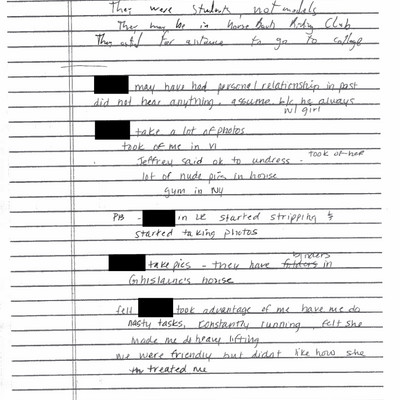 They were students, not models
They may be in horse back Riding Club
They for to go to college
may have had personal relationship in past
did not hear anything. assume b/c he always
w/ girl
take a lot of photos
took of me in VI
Jeffrey said ok to undress - took of her
lot of nude pics in house
gym in NY
PB - in started stripping &
started taking photos
take pics - they have binders in
Ghislaine's house
felt took advantage of me have me do
nasty tasks, constantly running, felt she
made me do heavy lifting
we were friendly but didnt like how she
treated me